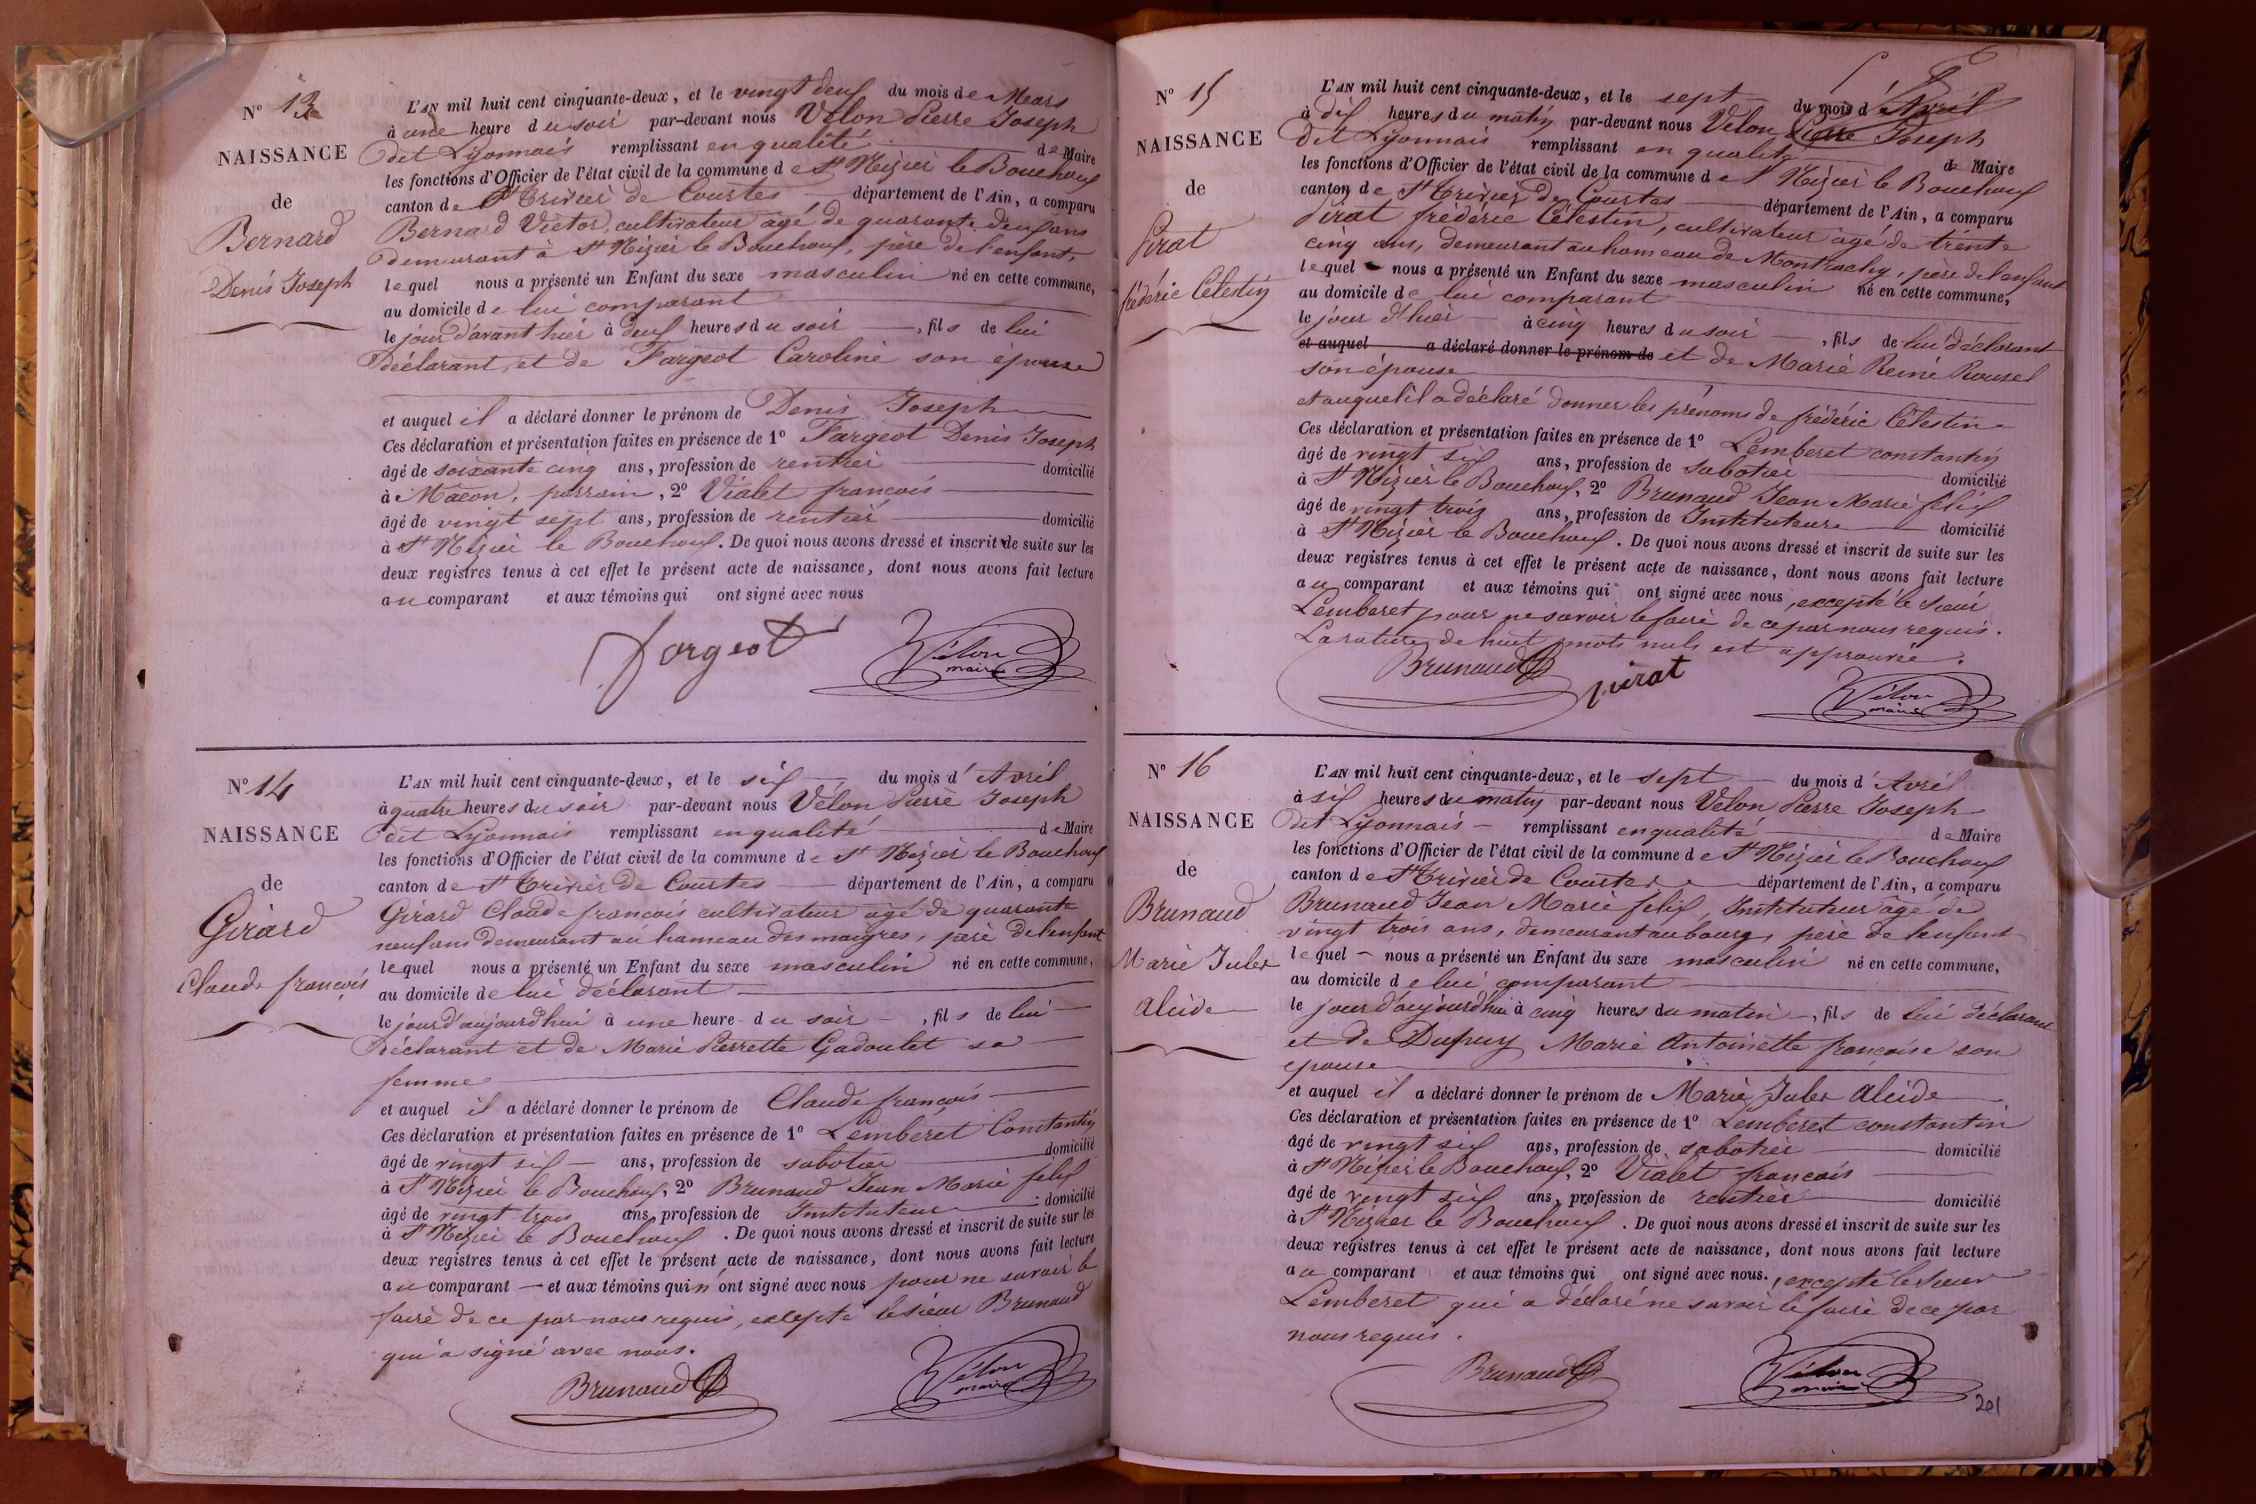 N° 13
NAISSANCE
de
Bernard
Denis Joseph
L'AN mil huit cent cinquante-deux, et le vingt deux du mois de Mars
à une heure du soir par-devant nous Vélon Pierre Joseph
dit Lyonnais remplissant en qualité de Maire
les fonctions d'Officier de l'état civil de la commune de St Nizier le Bouchoux
canton de St Trivier de Courtes département de l'Ain, a comparu
Bernard Victor, cultivateur âgé de quarante deux ans
demeurant à St Nizier le Bouchoux, père de l'enfant,
lequel nous a présenté un Enfant du sexe masculin né en cette commune,
au domicile de lui comparant
le jour d'avant hier à deux heures du soir, fils de lui
déclarant, et de Fargeot Caroline son épouse
et auquel il a déclaré donner le prénom de Denis Joseph
Ces déclaration et présentation faites en présence de 1° Fargeot Denis Joseph
âgé de soixante cinq ans, profession de rentier domicilié
à Mâcon, parrain, 2° Vialet françois
âgé de vingt sept ans, profession de rentier domicilié
à St Nizier le Bouchoux. De quoi nous avons dressé et inscrit de suite sur les
deux registres tenus à cet effet le présent acte de naissance, dont nous avons fait lecture
au comparant et aux témoins qui ont signé avec nous
fargeot Vélon
maire
N° 14
NAISSANCE
de
Girard
Claude françois
L'AN mil huit cent cinquante-deux, et le six du mois d'Avril
à quatre heures du soir par-devant nous Vélon Pierre Joseph
dit Lyonnais remplissant en qualité de Maire
les fonctions d'Officier de l'état civil de la commune de St Nizier le Bouchoux
canton de St Trivier de Courtes département de l'Ain, a comparu
Girard Claude françois cultivateur âgé de quarante
neuf ans demeurant au hameau des maigres, père de l'enfant
lequel nous a présenté un Enfant du sexe masculin né en cette commune,
au domicile de lui déclarant
le jour d'aujourd'hui à une heure du soir, fils de lui
déclarant et de Marie Pierrette Gadoulet sa
femme
et auquel il a déclaré donner le prénom de Claude françois
Ces déclaration et présentation faites en présence de 1° Lémberet Constantin
âgé de vingt six ans, profession de sabotier domicilié
à St Nizier le Bouchoux, 2° Brunaud Jean Marie félix
âgé de vingt trois ans, profession de Instituteur domicilié
à St Nizier le Bouchoux. De quoi nous avons dressé et inscrit de suite sur les
deux registres tenus à cet effet le présent acte de naissance, dont nous avons fait lecture
au comparant et aux témoins qui n'ont signé avec nous pour ne savoir le
faire de ce par nous requis, excepté le sieur Brunaud
qui a signé avec nous.
Brunaud Vélon
maire
N° 15
NAISSANCE
de
Pirat
frédéric Célestin
L'AN mil huit cent cinquante-deux, et le sept du mois d'Avril
à dix heures du matin par-devant nous Vélon Pierre Joseph
dit Lyonnais remplissant en qualité de Maire
les fonctions d'Officier de l'état civil de la commune de St Nizier le Bouchoux
canton de St Trivier de Courtes département de l'Ain, a comparu
Pirat frédéric Célestin, cultivateur âgé de trente
cinq ans, demeurant au hameau de Montrachy, père de l'enfant
lequel nous a présenté un Enfant du sexe masculin né en cette commune,
au domicile de lui comparant
le jour d'hier à cinq heures du soir, fils de lui déclarant
et auquel a déclaré donner le prénom de et de Marie Reine Roussel
son épouse
et auquel il a déclaré donner les prénoms de frédéric Célestin
Ces déclaration et présentation faites en présence de 1° Lemberet constantin
âgé de vingt six ans, profession de sabotier domicilié
à St Nizier le Bouchoux, 2° Brunaud Jean Marie félix
âgé de vingt trois ans, profession de Instituteur domicilié
à St Nizier le Bouchoux. De quoi nous avons dressé et inscrit de suite sur les
deux registres tenus à cet effet le présent acte de naissance, dont nous avons fait lecture
au comparant et aux témoins qui ont signé avec nous, excepté le sieur
Lemberet pour ne savoir le faire de ce par nous requis.
La rature de huit mots nuls est approuvée.
Brunaud pirat Vélon
maire
N° 16
NAISSANCE
de
Brunaud
Marie Jules
alcide
L'AN mil huit cent cinquante-deux, et le sept du mois d'Avril
à six heures du matin par-devant nous Vélon Pierre Joseph
dit Lyonnais remplissant en qualité de Maire
les fonctions d'Officier de l'état civil de la commune de St Nizier le Bouchoux
canton de St Trivier de Courtes département de l'Ain, a comparu
Brunaud Jean Marie félix, Instituteur âgé de
vingt trois ans, demeurant au bourg, père de l'enfant
lequel nous a présenté un Enfant du sexe masculin né en cette commune,
au domicile de lui comparant
le jour d'aujourd'hui à cinq heures du matin, fils de lui déclarant
et de Dupuy Marie Antoinette françoise son
epouse
et auquel il a déclaré donner le prénom de Marie Jules alcide
Ces déclaration et présentation faites en présence de 1° Lemberet constantin
âgé de vingt six ans, profession de sabotier domicilié
à St Nizier le Bouchoux, 2° Vialet françois
âgé de vingt six ans, profession de rentier domicilié
à St Nizier le Bouchoux. De quoi nous avons dressé et inscrit de suite sur les
deux registres tenus à cet effet le présent acte de naissance, dont nous avons fait lecture
au comparant et aux témoins qui ont signé avec nous., excepté le sieur
Lémberet qui a déclaré ne savoir le faire de ce par
nous requis.
Brunaud Vélon
maire
201